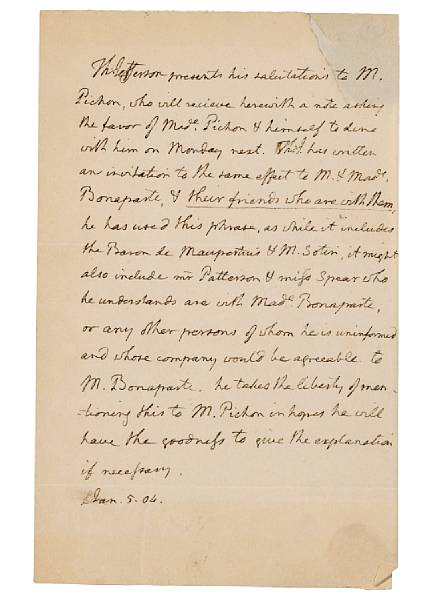 Th: Jefferson presents his salutations to M.
Pichon, who will recieve herewith a note asking
the favor of Made. Pichon & himself to dine
with him on Monday next. Th:J. has written
an invitation to the same effect to M. & Made.
Bonaparte, & their friends who are with them,
he has used this phrase, as while it includes
the Baron de Maupertuis & M. Sotin, it might
also include mr Patterson & miss Spear who
he understands are with Made. Bonaparte,
or any other persons of whom he is uninformed
and whose company would be agreeable to
M. Bonaparte. he takes the liberty of men-
-tioning this to M. Pichon in hopes he will
have the goodness to give the explanation
if necessary.
Jan. 5. 04.